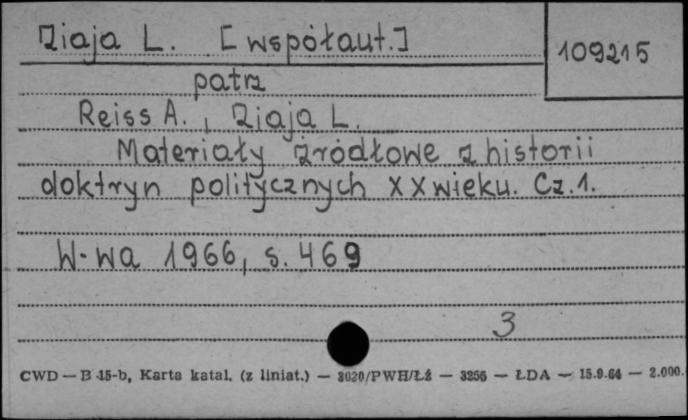 Ziaja L. [współaut.]
109215
patrz
Reiss A., Ziaja L.
Materiały źródłowe z historii
doktryn politycznych XX wieku. Cz.1.
W-wa 1966, s. 469
3
CWD — B 15-b, Karta katal. (z liniat.) — 3020/PWH/Łź — 3256 — ŁDA — 15.9.64 — 2.000.